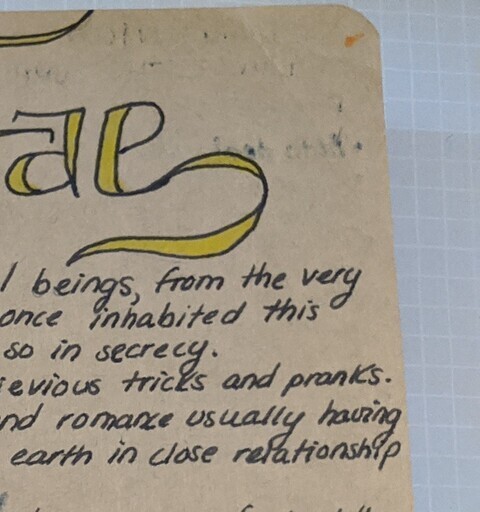 ae
l beings, from the very
once inhabited this
so in secrecy.
ievious tricks and pranks.
nd romance usually having
earth in close relationship